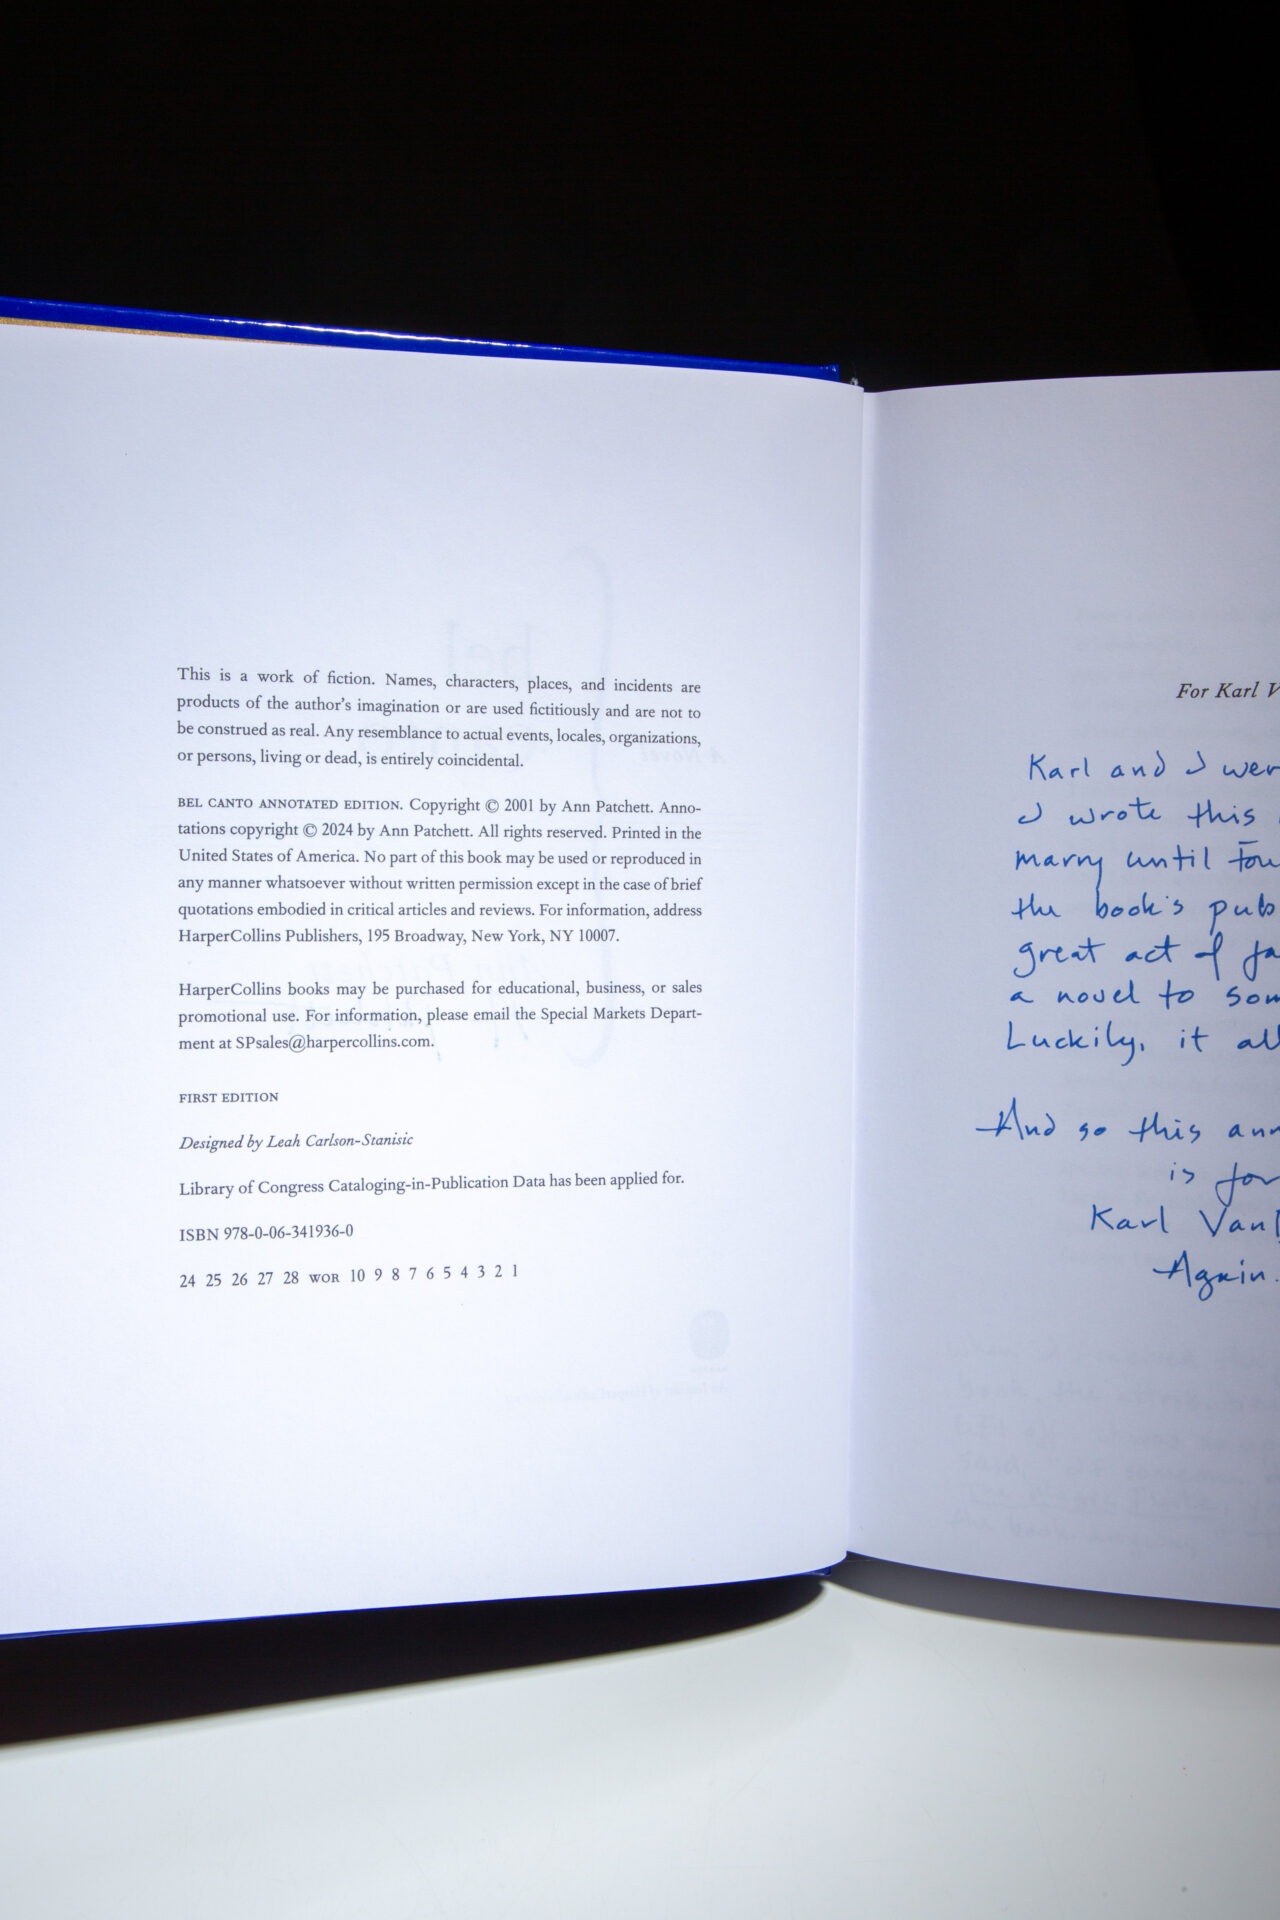 This is a work of fiction. Names, characters, places, and incidents are
products of the author's imagination or are used fictitiously and are not to
be construed as real. Any resemblance to actual events, locales, organizations,
or persons, living or dead, is entirely coincidental.
BEL CANTO ANNOTATED EDITION. Copyright © 2001 by Ann Patchett. Anno-
tations copyright © 2024 by Ann Patchett. All rights reserved. Printed in the
United States of America. No part of this book may be used or reproduced in
any manner whatsoever without written permission except in the case of brief
quotations embodied in critical articles and reviews. For information, address
HarperCollins Publishers, 195 Broadway, New York, NY 10007.
HarperCollins books may be purchased for educational, business, or sales
promotional use. For information, please email the Special Markets Depart-
ment at SPsales@harpercollins.com.
FIRST EDITION
Designed by Leah Carlson-Stanisic
Library of Congress Cataloging-in-Publication Data has been applied for.
ISBN 978-0-06-341936-0
24 25 26 27 28 WOR 10 9 8 7 6 5 4 3 2 1
For Karl V
Karl and I wer
I wrote this
marry until fou
the book's pub
great act of fa
a novel to som
Luckily, it all
And so this ann
is for
Karl Van
Again.